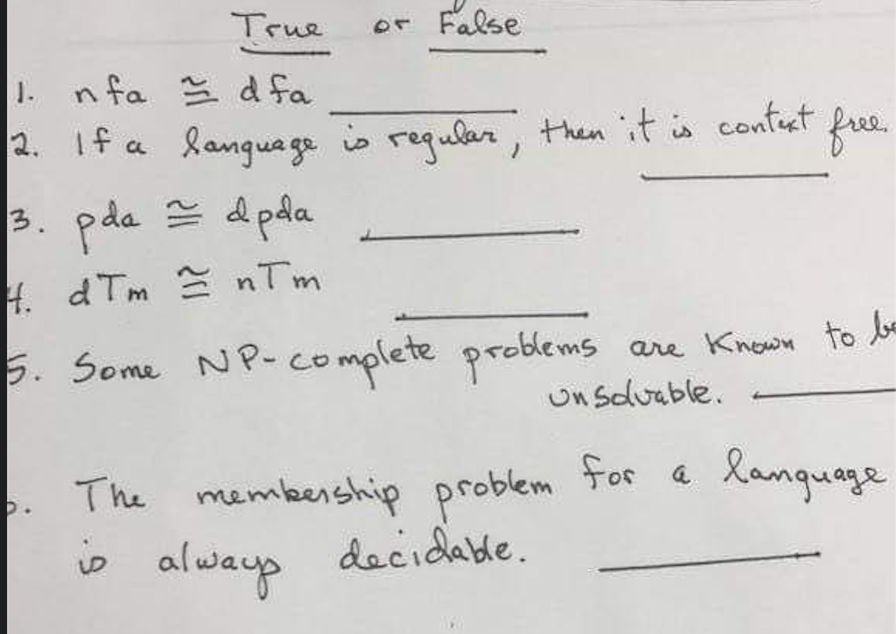 True or False
1. nfa ≅ dfa
2. If a language is regular, then it is context free.
3. pda ≅ dpda
4. dTm ≅ nTm
5. Some NP-complete problems are Known to be
unsolvable.
The membership problem for a language
is always decidable.